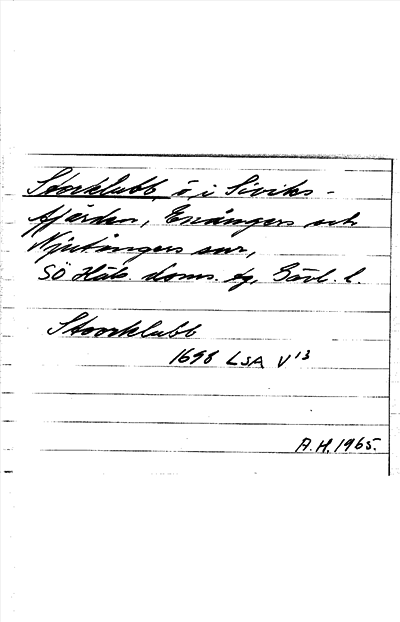 Storklubb, ö i Siviks-
fjärden, Enångers och
Njutångers snr,
SÖ Häls. doms. tg, Gävl. l.
Storklubb
1698 LSA V13
A.H. 1965.